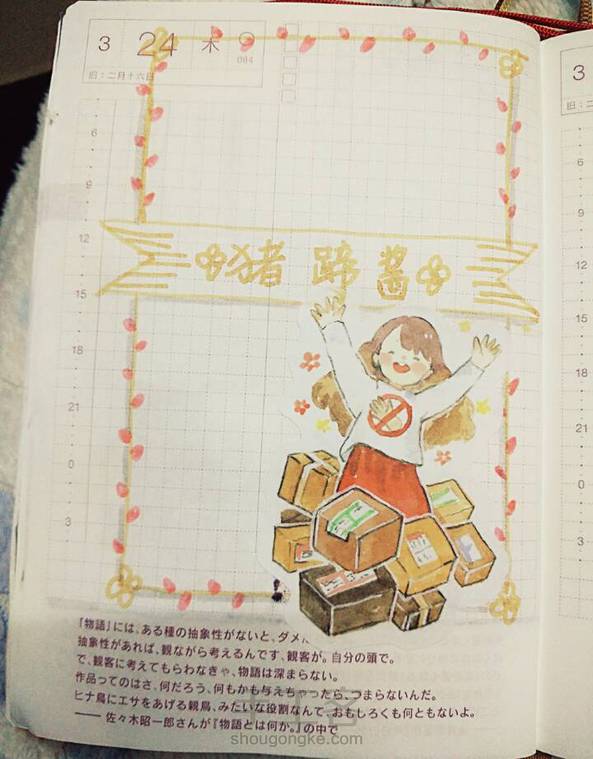 3 24 木
084
旧：二月十六日
3
旧：二
6
9
12
15
18
21
0
3
6
9
12
15
18
21
0
3
猪蹄酱
「物語」には、ある種の抽象性がないと、ダメ
抽象性があれば、観ながら考えるんです、観客が。自分の頭で。
で、観客に考えてもらわなきゃ、物語は深まらない。
作品ってのはさ、何だろう、何もかも与えちゃったら、つまらないんだ。
ヒナ鳥にエサをあげる親鳥、みたいな役割なんて、おもしろくも何ともないよ。
── 佐々木昭一郎さんが『物語とは何か。』の中で
shougongke.com